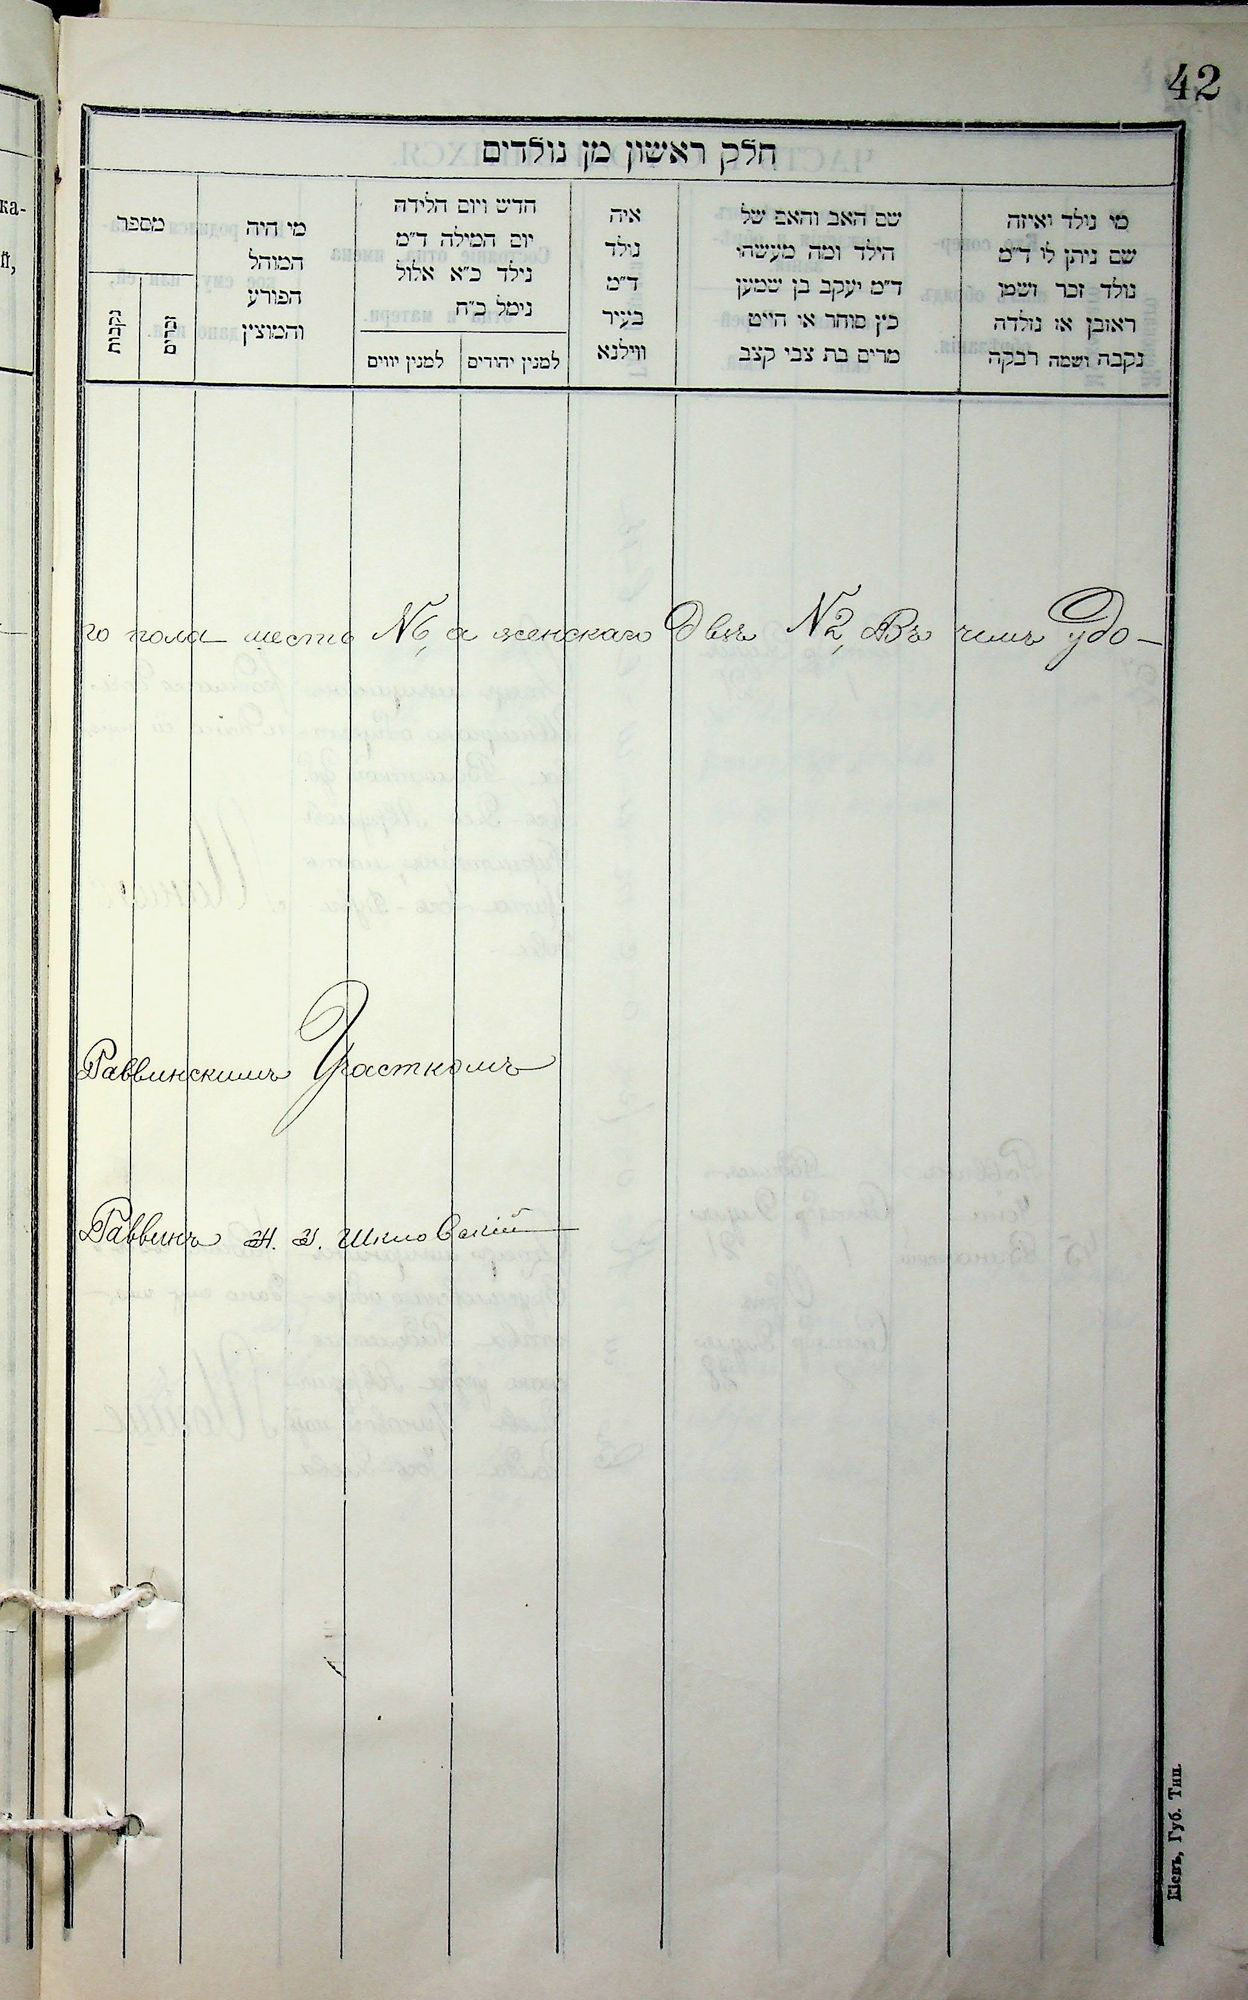 42
חלק ראשון מן נולדים
מי נולד ואיזה
שם ניתן לו ד״מ
נולד זכר ושמו
ראובן או נולדה
נקבה ושמה רבקה
שם האב והאם של
הילד ומה מעשהו
ד״מ יעקב בן שמעון
כץ סוחר או חייט
מרים בת צבי קצב
איה
נולד
ד״מ
בעיר
ווילנא
חדש ויום הלידה
יום המילה ד״מ
נילד כ״א אלול
נימל כ״ח
למנין יהודים
למנין יווים
מי היה
המוהל
הפורע
והמוצין
מספר
זכרים
נקבות
ка-
й,
го пола шесть № 6, а женскаго двѣ № 2, Въ чемъ удо-
Раввинскимъ Участкомъ
Раввинъ
Шкловскій
Кіевъ, Губ. Тип.